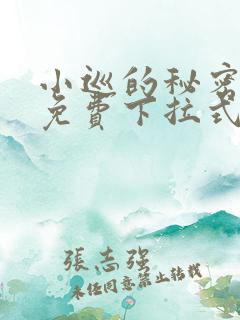 小巡的秘密
免費下拉式
張志強
未经同意禁止转载